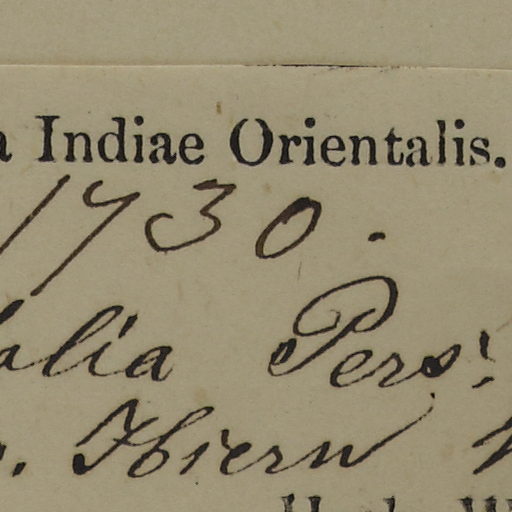 a Indiae Orientalis.
1730.
alia Pers!
. Hiern